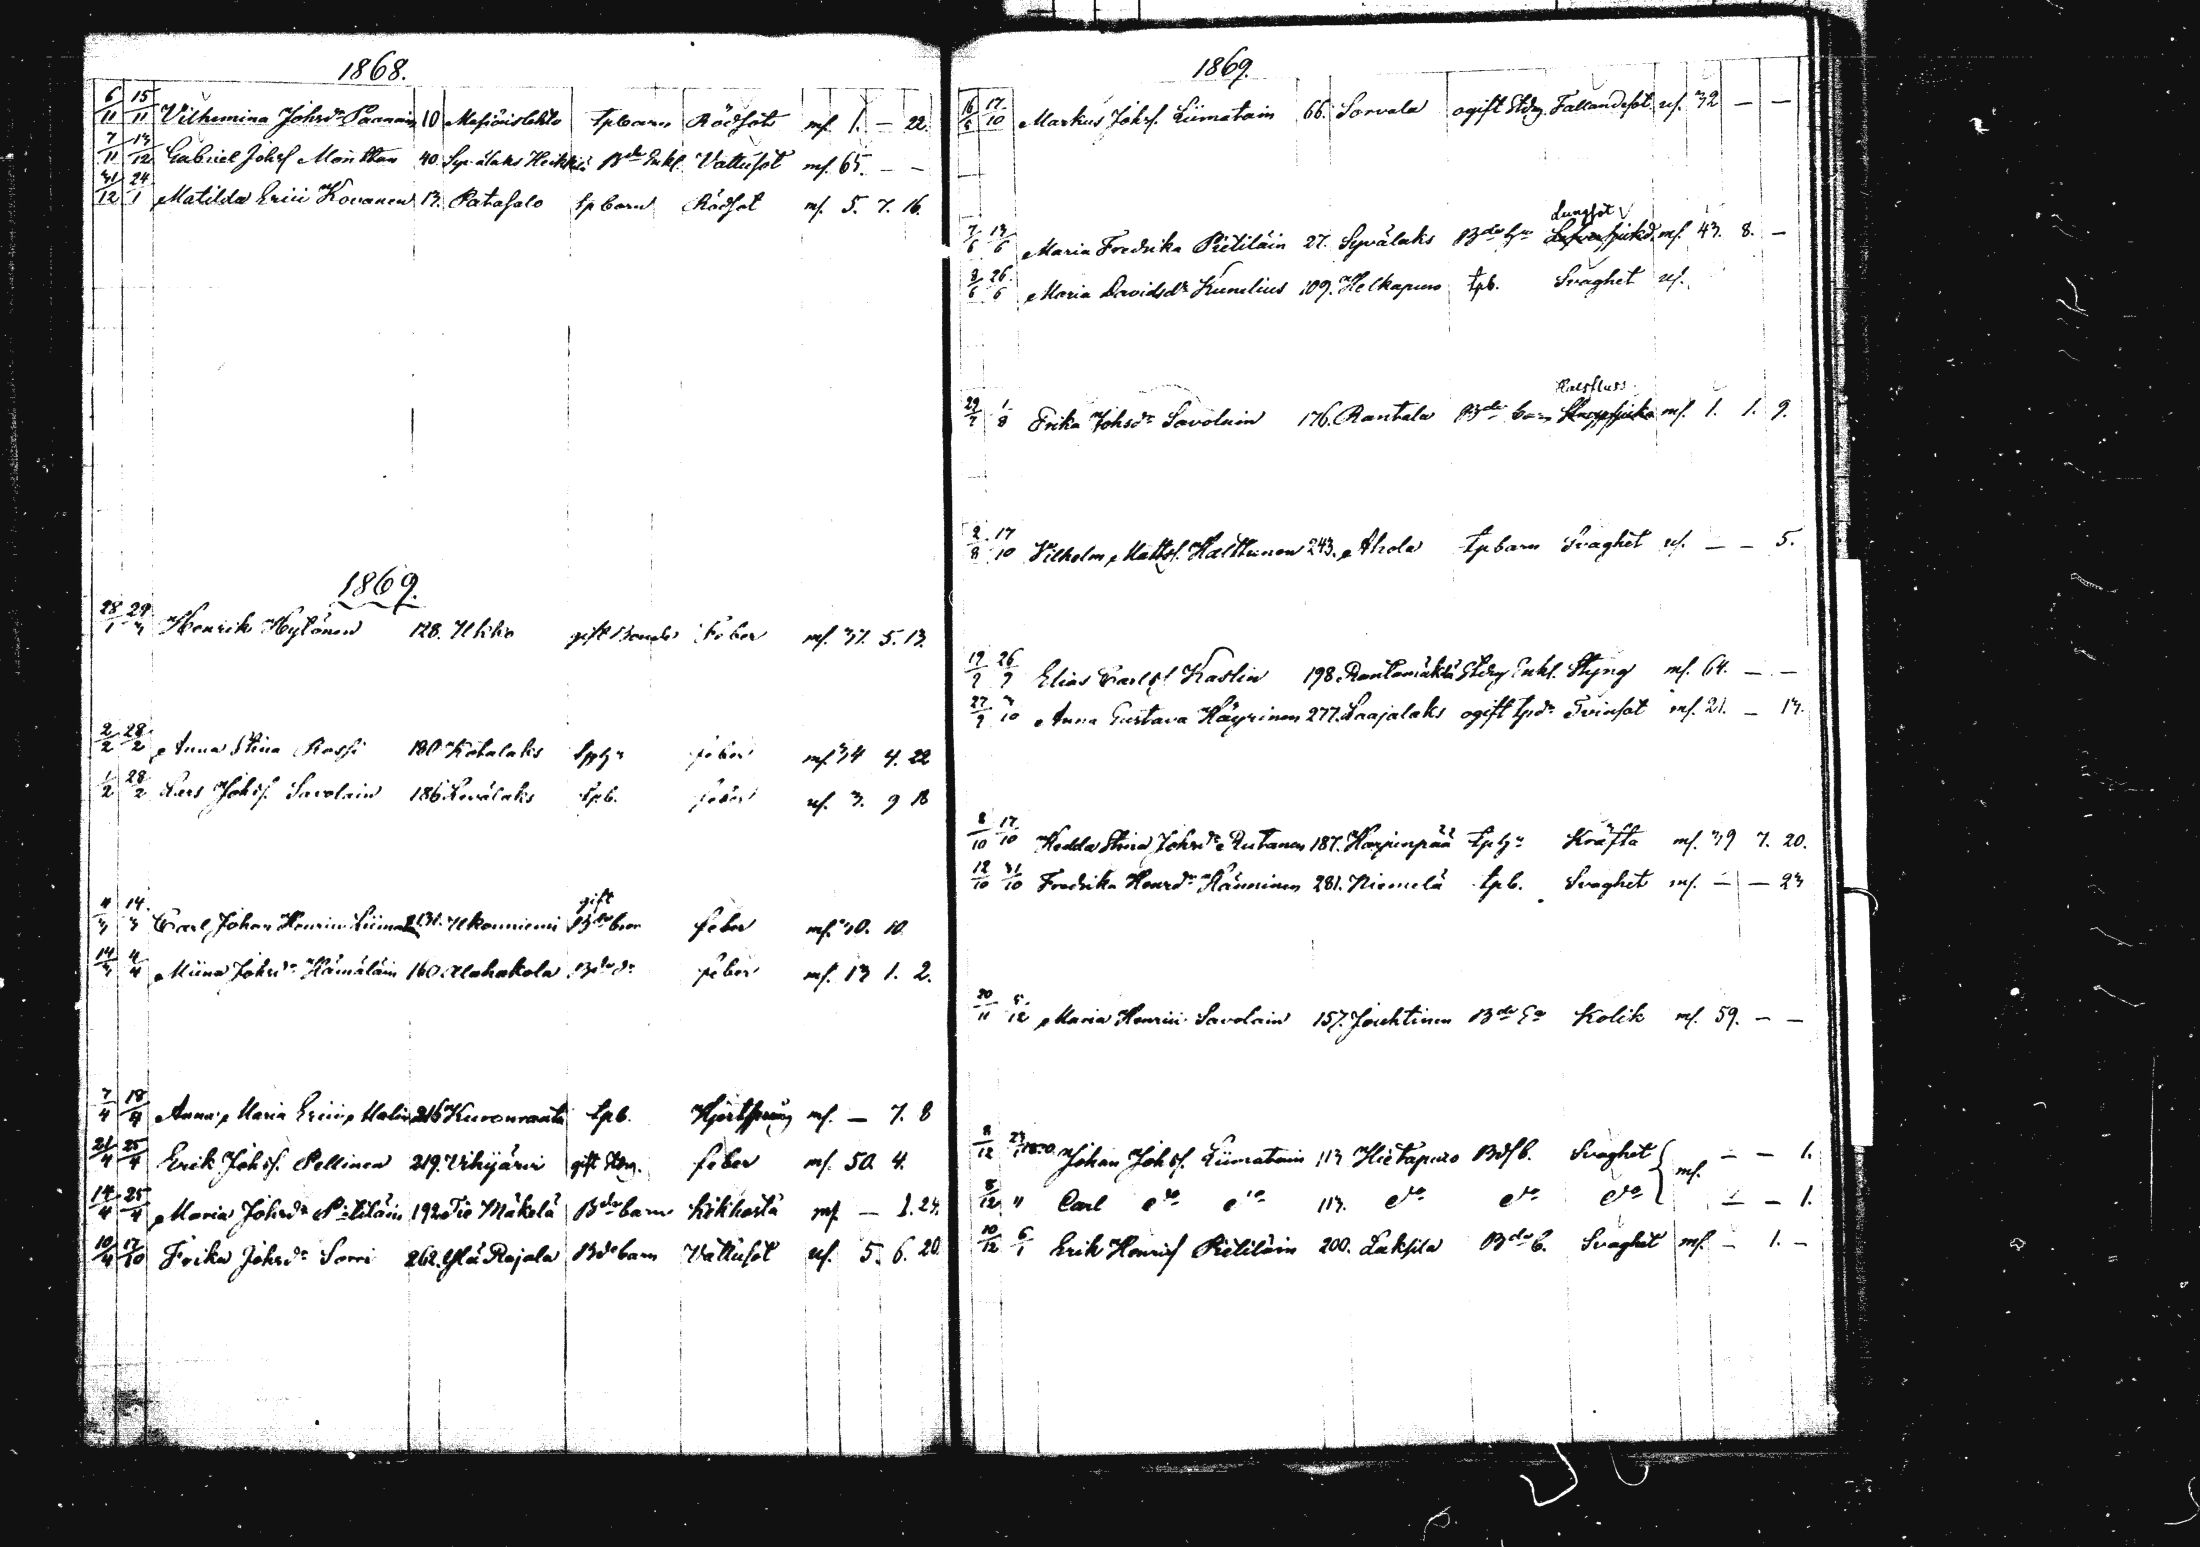 1868.
6/11 15/11 Vilhemina Johsdr Paanain 10 Mesiäislehto tpbarn Rödsot mf. 1. – 22.
7/11 13/12 Gabriel Johsf Mönkkön 40. Syvälaks Heikkilä Bde Enkl. Vattusot mf. 65. – –
31/12 24/1 Matilda Erici Kovanen 13. Patasalo tpbarn Rödsot mf. 5. 7. 16.
1869.
28/1 29/3 Henrik Hytönen 128. Ukko gift Bonde Feber mf. 37. 5. 13.
2/2 28/2 Anna Stina Rossi 180 Kotalaks feber mf. 34 4. 22
1/2 28/2 Lars Johsf. Savolain 186 Levälaks tpb. feber uf. 3. 9 18
gift
4/3 14/3 Carl Johan Henrici 131. Ukonniemi feber mf. 30. 10.
14/3 4/4 Miina Johsdr Hämäläin 160. Alahakola Bdedr feber mf. 13 1. 2.
7/4 18/4 Anna Maria Erici Malin 216 Kuronranta tpb. mf. – 7. 8
21/4 25/4 Erik Johsf. Pellinen 219. Vihijärvi gift Stdng. feber mf. 50. 4.
14/4 25/4 Maria Johsdr Pietiläin 192 Tie Mäkelä Bdebarn Kikhosta mf. – 1. 24.
10/4 17/10 Frika Johsdr Sorri 262. Ylä Rajala Bdebarn Vattusot uf. 5. 6. 20
1869.
16/5 17/10 Markus Johsf. Liimatain 66. Sorvala ogift Stdng. Fallandesot uf. 32 – –
Lungsot
7/6 13/6 Maria Fredrika Pietiläin 27. Syvälaks mf. 43. 8. –
8/6 26/6 Maria Davidsdr Kunelius 109. Helkapuro tpb. Svaghet uf.
Halsfluss
29/7 1/8 Frika Johsdr Savolain 176. Rantala Bde barn mf. 1. 1. 9.
2/8 17/10 Vilhelm Mattsf. Halttunen 243. Ahola tpbarn Svaghet uf. – – 5.
19/9 26/9 Elias Carlsf Kaslin 198. Rantamäkilä Stdng Enkl. Styng mf. 64. – –
27/9 3/10 Anna Gustava Häyrinen 277. Laajalaks ogift tpdr Tvinsot mf. 21. – 13.
8/10 17/10 Hedda Stina Johsdr Rutanen 187. Harjunpää Kräfta mf. 39 7. 20.
12/10 31/10 Fredrika Henrdr Hänninen 281. Niemelä tpb. Svaghet mf. – – 23
20/11 5/12 Maria Henrici Savolain 157. Jouhtinen Kolik mf. 59. – –
8/12 23/1 1870. Johan Johsf. Liimatain 113 Hietapuro Bdsb. Svaghet mf. – – 1.
8/12 " Carl do do 113. do do do – – 1.
10/12 6/1 Erik Henricsf Pietiläin 200. Laksila Bde b. Svaghet mf. – 1. –